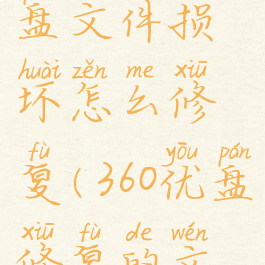 盘文件损
huài zěn me xiū
坏怎么修
fù yōu pán
复(360优盘
xiū fù de wén
修复的文